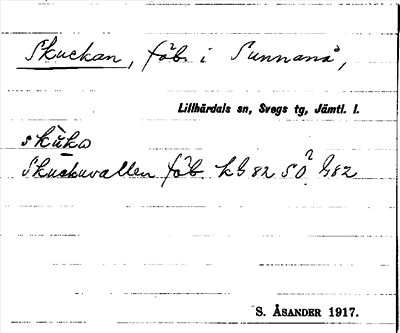 Skuckan, fäb. i Sunnanå,
Lillhärdals sn, Svegs tg, Jämtl. l.
skùka
Skuckuvallen fäb. kb 82 SO? h82
S. ÅSANDER 1917.